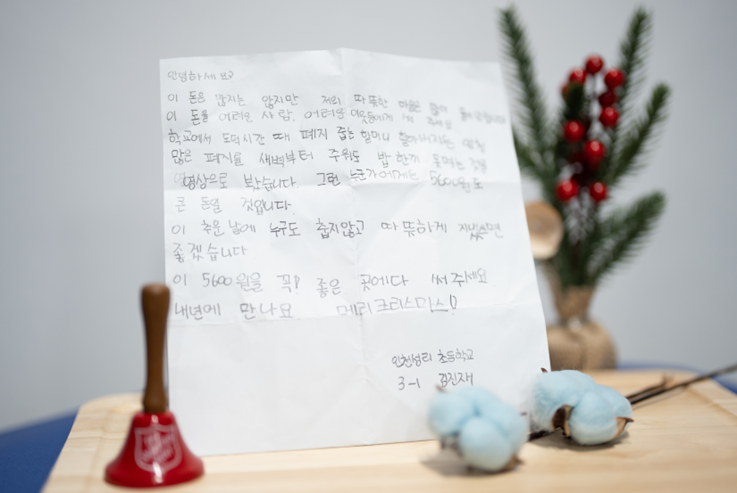 안녕하세요?
이 돈은 많지는 않지만 저의 따뜻한 마음은 많이 들어있습니다
이 돈을 어려운 사람, 어려운 이웃들에게 써 주세요
학교에서 도덕시간 때 폐지 줍는 할머니 할아버지는
많은 폐지를 새벽부터 주워도 밥 한끼 못먹는 것을
영상으로 봤습니다 그런 누군가에게는 5600원도
큰 돈일 것입니다
이 추운 날에 누구도 춥지않고 따뜻하게 지냈으면
좋겠습니다
이 5600원을 꼭! 좋은 곳에다 써주세요
내년에 만나요 메리크리스마스!
인천넘리 초등학교
3-1 김진재